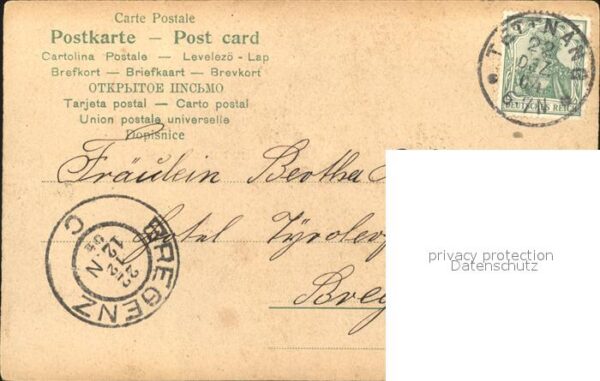 Carte Postale
Postkarte — Post card
Cartolina Postale — Levelező-Lap
Brefkort — Briefkaart — Brevkort
ОТКРЫТОЕ ПИСЬМО
Tarjeta postal — Carto postal
Union postale universelle
Dopisnice
TETTNANG
22
DEZ
DEUTSCHES REICH
Fräulein Bertha
Hotel Tyroler
Breg
BREGENZ
C
privacy protection
Datenschutz